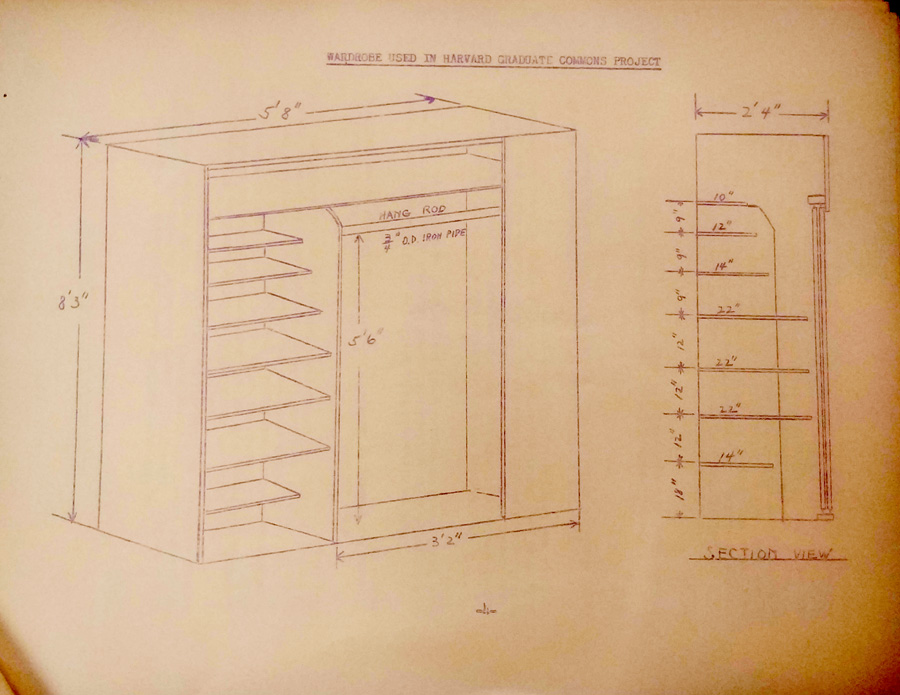 WARDROBE USED IN HARVARD GRADUATE COMMONS PROJECT
5'8"
8'3"
HANG ROD
3/4" O.D. IRON PIPE
5'6"
3'2"
2'4"
10"
9"
12"
9"
14"
9"
22"
12"
22"
12"
22"
12"
14"
18"
SECTION VIEW
-4-